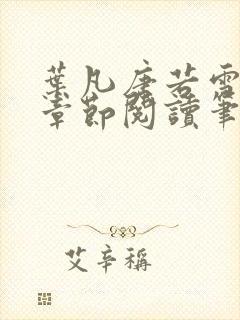 葉凡唐若雪
章節閱讀筆
艾辛稱